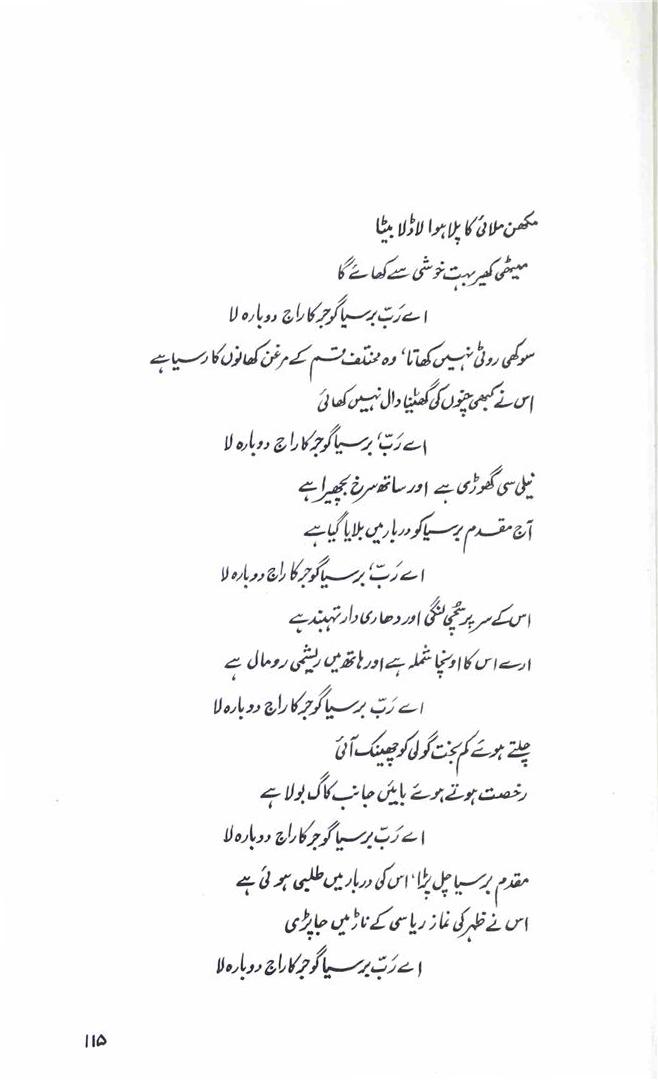 مکھن ملائی کا پلا ہوا لاڈلا بیٹا
میٹھی کھیر بہت خوشی سے کھائے گا
اے رَبّ برسیا گوجر کا راج دوبارہ لا
سوکھی روٹی نہیں کھاتا، وہ مختلف قسم کے مرغن کھانوں کا رسیا ہے
اس نے کبھی چنوں کی گھٹیا دال نہیں کھائی
اے رَبّ، برسیا گوجر کا راج دوبارہ لا
نیلی سی گھوڑی ہے اور ساتھ سرخ بچھیرا ہے
آج مقدم برسیا کو دربار میں بلایا گیا ہے
اے رَبّ، برسیا گوجر کا راج دوبارہ لا
اس کے سر پر سچّی لنگی اور دھاری دار تہبند ہے
ارے اس کا اونچا شملہ ہے اور ہاتھ میں ریشمی رومال ہے
اے رَبّ برسیا گوجر کا راج دوبارہ لا
چلتے ہوئے کم بخت گولی کو چھینک آئی
رخصت ہوتے ہوئے بائیں جانب کاگ بولا ہے
اے رَبّ برسیا گوجر کا راج دوبارہ لا
مقدم برسیا چل پڑا، اس کی دربار میں طلبی ہوئی ہے
اس نے ظہر کی نماز ریاسی کے ناڑ میں جا پڑی
اے رَبّ برسیا گوجر کا راج دوبارہ لا
۱۱۵